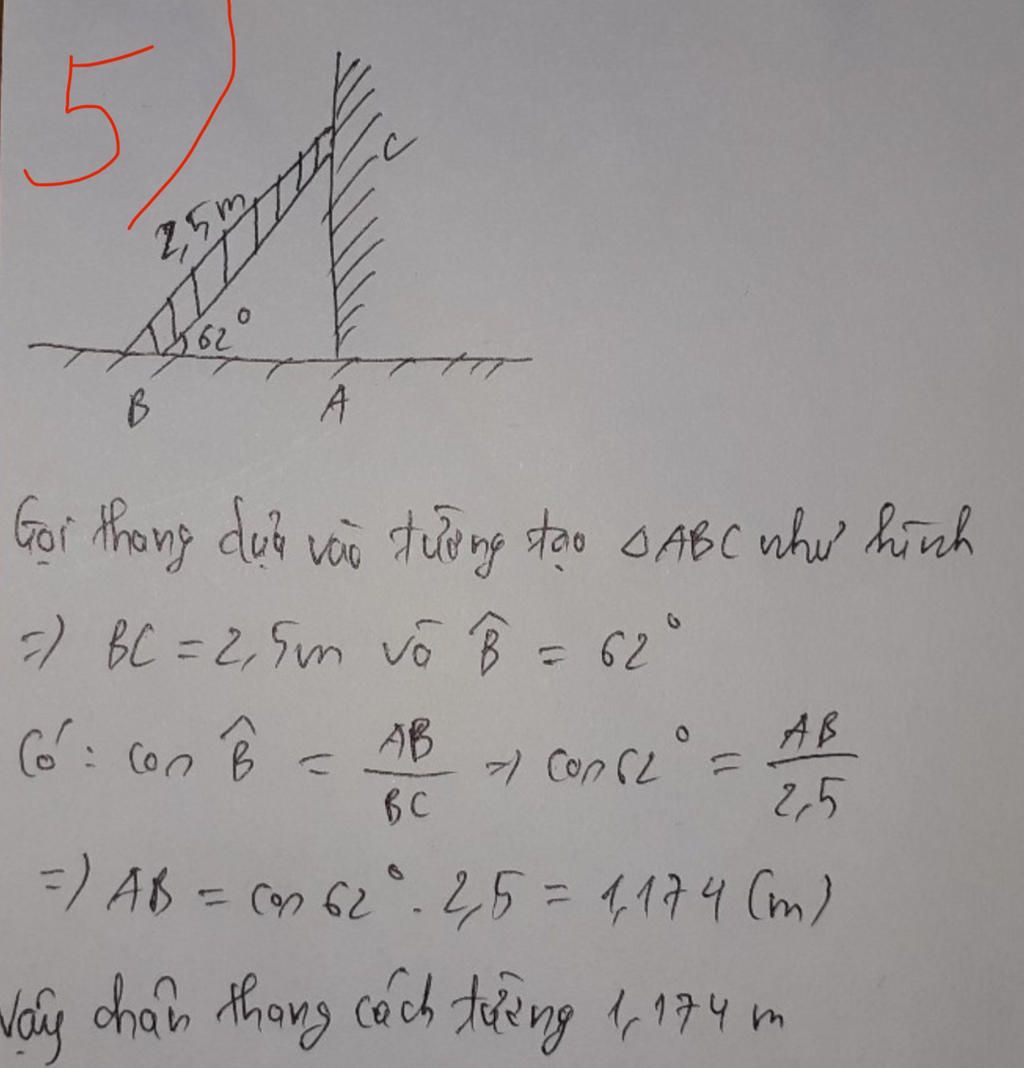 5)
C
2,5m
62°
B A
Gọi thang dựa vào tường tạo △ABC như hình
=) BC = 2,5m và B̂ = 62°
Có: cos B̂ = AB/BC =) cos 62° = AB/2,5
=) AB = cos 62° . 2,5 = 1,174 (m)
Vậy chân thang cách tường 1,174 m